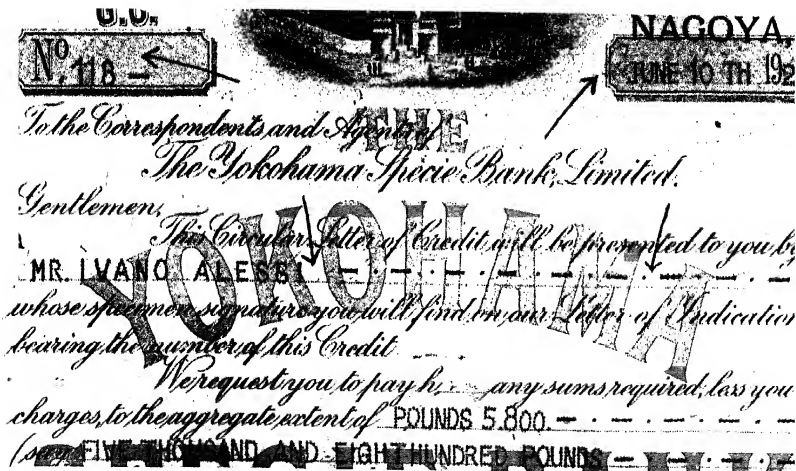 G.C.
NAGOYA,
No. 118 -
JUNE 10 TH 192
THE
To the Correspondents and Agents of
The Yokohama Specie Bank, Limited.
Gentlemen,
This Circular Letter of Credit will be presented to you by
MR. IVANO ALESSI
YOKOHAMA
whose specimen signature you will find on our Letter of Indication
bearing the number of this Credit
We request you to pay h any sums required, less you
charges, to the aggregate extent of POUNDS 5.800.-
(say FIVE THOUSAND AND EIGHT HUNDRED POUNDS